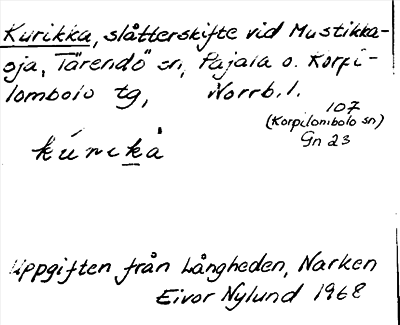 Kurikka, slåtterskifte vid Mustikka-
oja, Tärendö sn, Pajala o. Korpi-
lombolo tg, Norrb. l.
107
(Korpilombolo sn)
Gn 23
kúrikå
Uppgiften från Långheden, Narken
Eivor Nylund 1968